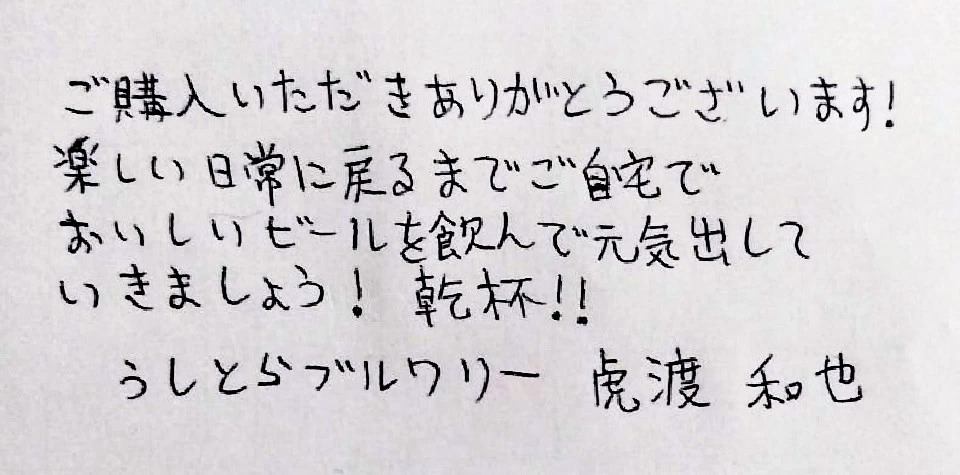 ご購入いただきありがとうございます!
楽しい日常に戻るまでご自宅で
おいしいビールを飲んで元気出して
いきましょう! 乾杯!!
うしとらブルワリー 虎渡 和也